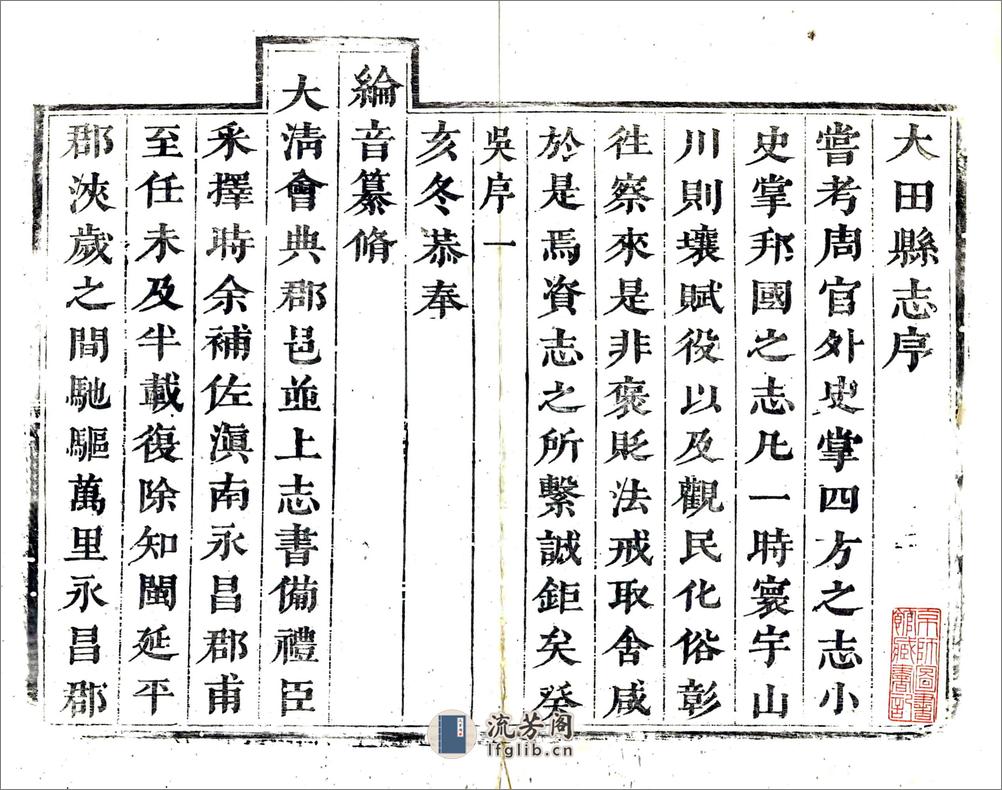 大田縣志序
嘗考周官外史掌四方之志小
史掌邦國之志凡一時寰宇山
川則壤賦役以及觀民化俗彰
徃察來是非褒貶法戒取舍咸
於是焉資志之所繫誠鉅矣癸
吳序 一
亥冬恭奉
綸音纂脩
大清會典郡邑並上志書備禮臣
采擇時余補佐滇南永昌郡甫
至任未及半載復除知閩延平
郡浹歲之間馳驅萬里永昌郡
流芳阁
lfglib.cn